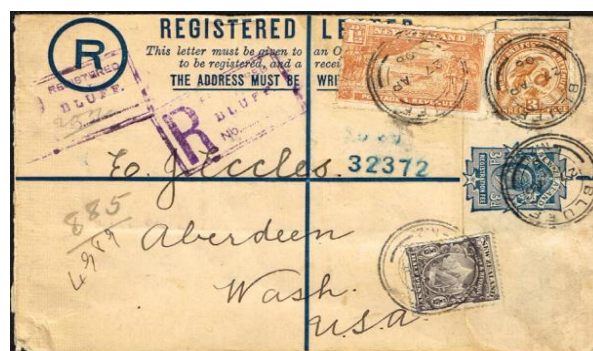 REGISTERED
This letter must be given to an
to be registered, and a
THE ADDRESS MUST BE
R
REGISTERED
BLUFF.
BLUFF
R No.
NEW ZEALAND
BLUFF
32372
REGISTRATION FEE
3d 3d
E. J. Eccles.
885
4989
Aberdeen
Wash.
U.S.A.
NEW ZEALAND